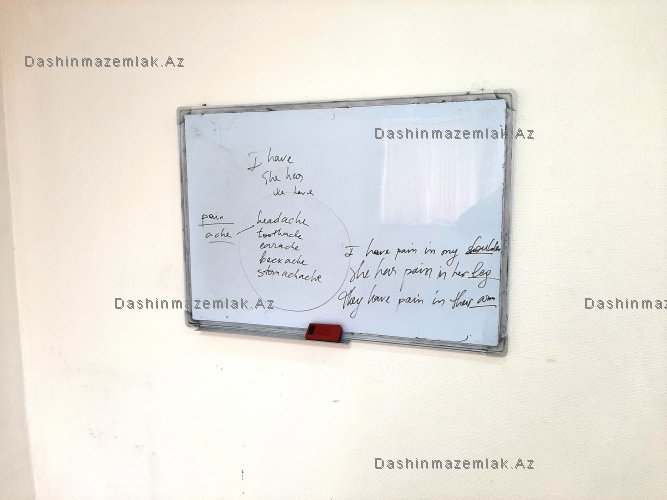 Dashinmazemlak.Az
Dashinmazemlak.Az
I have
She has
We have
pain
ache
headache
toothache
earache
backache
stomachache
I have pain in my shoulder
She has pain in her leg
They have pain in their arm
Dashinmazemlak.Az
Dashinmazem
Dashinmazemlak.Az